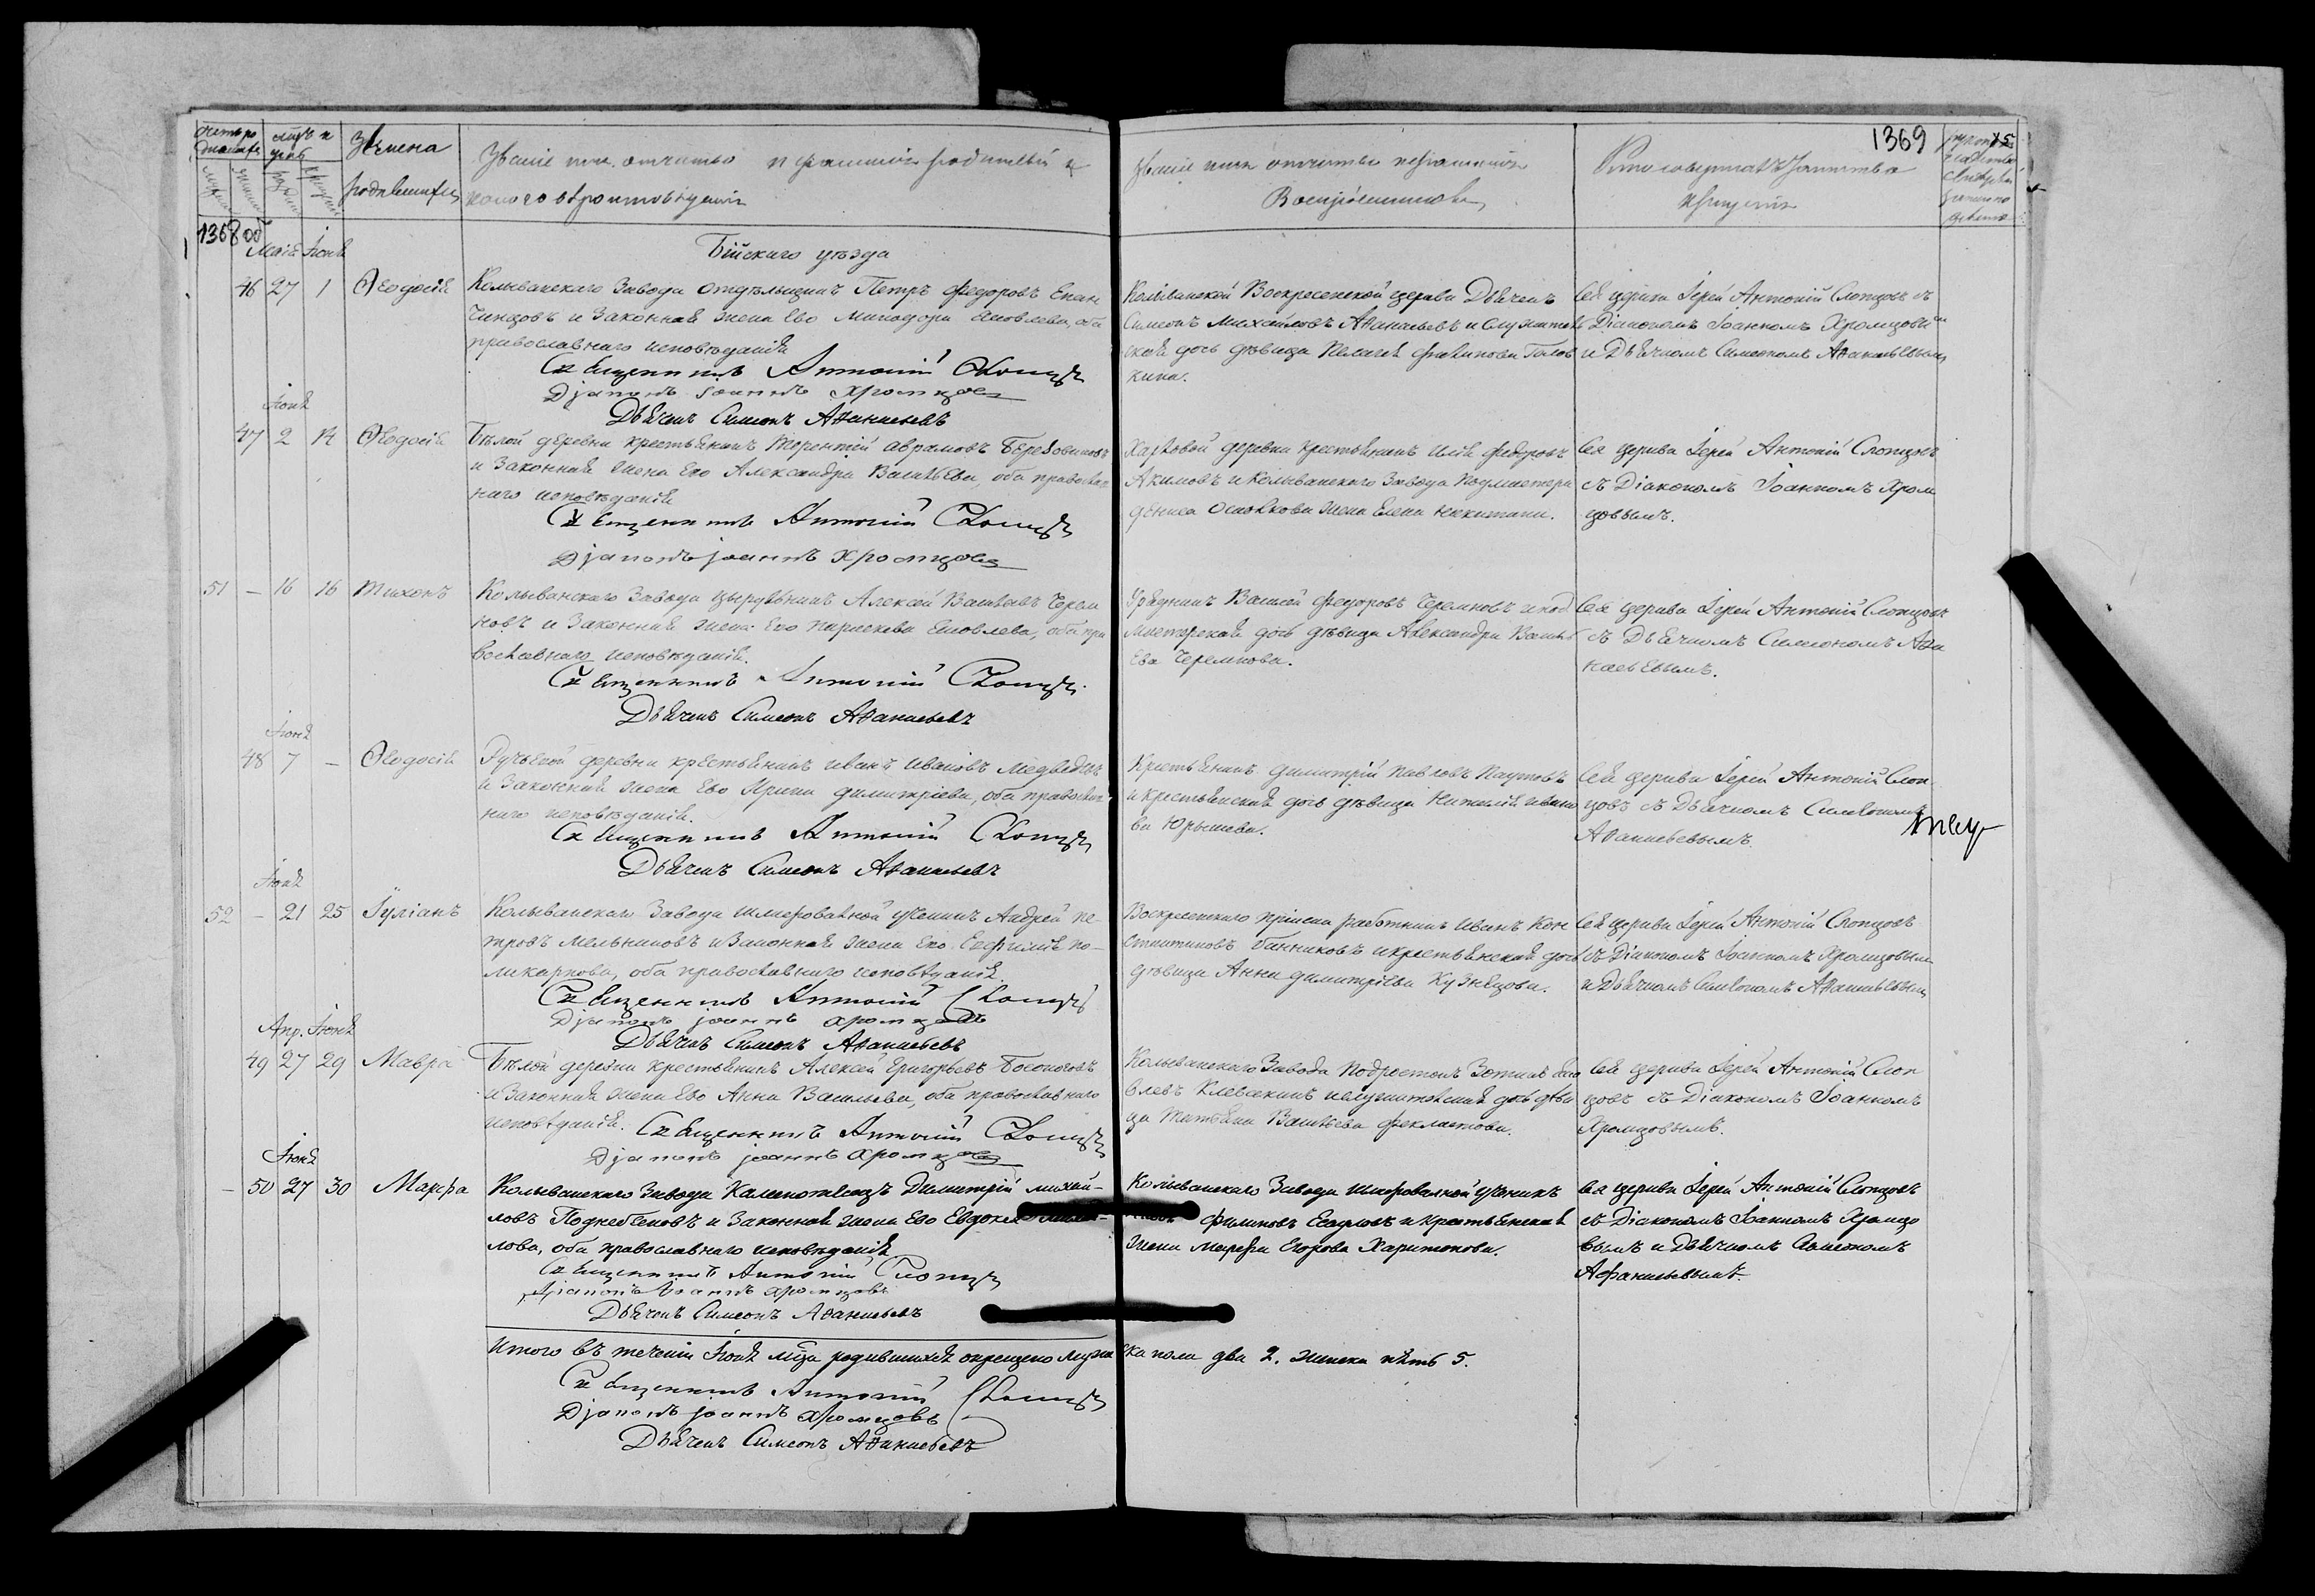 1369
Счетъ родившихся
Имена родившихся
Званіе имя, отчество и фамилія родителей и какого вѣроисповѣданія
Званіе имя отчество и фамилія Воспріемниковъ
Кто совершалъ таинство крещенія
1368 об
Маія Іюня
Бійскаго уѣзда
46 27 1 Ѳеодосія
Колыванскаго Завода Петръ Федоровъ
и Законная жена Его Яковлева, оба
православнаго исповѣданія
Священникъ Антоній Слопцовъ
Діаконъ Іоаннъ Хромцовъ
Дьячекъ Симеонъ Аѳанасьевъ
Колыванской Воскресенской церкви Дьячекъ
Симеонъ Михайловъ Аѳанасьевъ и служитель
ская дочь дѣвица Пелагея Голов
кина.
Сея церкви Іерей Антоній Слопцовъ съ
Діакономъ Іоанномъ Хромцовым
и Дьячкомъ Симеономъ Аѳанасьевым
Іюня
47 2 14 Ѳеодосія
Бѣлой деревни крестьянинъ Аврамовъ
и Законная жена Его Александра Васильева, оба православ
наго исповѣданія
Священникъ Антоній Слопцовъ
Діаконъ Іоаннъ Хромцовъ
Харловой деревни крестьянинъ Илія Федоровъ
Акимовъ и Колыванскаго Завода Подмастера
жена Елена Никитина.
Сея церкви Іерей Антоній Слопцовъ
съ Діакономъ Іоанномъ Хром
цовымъ.
51 — 16 16 Тихонъ
Колыванскаго Завода цырульникъ Алексѣй Васильевъ Черем
новъ и Законная жена Его Параскева Яковлева, оба пра
вославнаго исповѣданія.
Священникъ Антоній Слопцовъ
Дьячекъ Симеонъ Аѳанасьевъ
Урядникъ Василій Федоровъ Черемновъ и под
мастерская дочь дѣвица Александра Василь
ева Черемнова.
Сея церкви Іерей Антоній Слопцовъ
съ Дьячкомъ Симеономъ Аѳа
насьевымъ.
Іюня
48 7 — Ѳеодосія
Ручьевой деревни крестьянинъ Иванъ Ивановъ
и Законная жена Его Ирина Димитріева, оба православ
наго исповѣданія.
Священникъ Антоній Слопцовъ
Дьячекъ Симеонъ Аѳанасьевъ
Крестьянинъ Димитрій Павловъ Паутовъ
и крестьянская дочь дѣвица Наталія Ивано
ва Юрышева.
Сея церкви Іерей Антоній Слоп
цовъ съ Дьячкомъ Симеономъ
Аѳанасьевымъ.
Іюня
52 — 21 25 Іуліанъ
Колыванскаго Завода шлифовальной ученикъ Андрей Пе-
тровъ Мельниковъ и Законная жена Его Евфимія По-
ликарпова, оба православнаго исповѣданія
Священникъ Антоній Слопцовъ
Діаконъ Іоаннъ Хромцовъ
Дьячекъ Симеонъ Аѳанасьевъ
Воскресенскаго пріиска работникъ Иванъ Кон
стантиновъ Банниковъ и крестьянская дочь
дѣвица Анна Димитріева Кузнецова.
Сея церкви Іерей Антоній Слопцовъ
съ Діакономъ Іоанномъ Хромцовым
и Дьячкомъ Симеономъ Аѳанасьевым
Апр. Іюня
49 27 29 Мавра
Бѣлой деревни крестьянинъ Алексѣй Григорьевъ Босоноговъ
и Законная жена Его Анна Васильева, оба православнаго
исповѣданія. Священникъ Антоній Слопцовъ
Діаконъ Іоаннъ Хромцовъ
Колыванскаго Завода Подростокъ
Клевакинъ и служительская дочь дѣви
ца Татьяна Васильева Феклистова.
Сея церкви Іерей Антоній Слоп
цовъ съ Діакономъ Іоанномъ
Хромцовымъ.
Іюня
— 50 27 30 Марфа
Колыванскаго Завода Каменотесецъ Димитрій Михай-
ловъ Поднебеновъ и Законная жена Его Евдокея
лова, оба православнаго исповѣданія
Священникъ Антоній Слопцовъ
Діаконъ Іоаннъ Хромцовъ
Дьячекъ Симеонъ Аѳанасьевъ
Колыванскаго Завода шлифовалной ученикъ
Филиповъ и крестьянская
жена Марфа Егорова Харитонова.
Сея церкви Іерей Антоній Слопцовъ
съ Діакономъ Іоанномъ Хромцо
вымъ и Дьячкомъ Симеономъ
Афанасьевымъ.
Итого въ теченіи Іюня мѣсяца родившихся окрещено мужеска пола два 2. женска пять 5.
Священникъ Антоній Слопцовъ
Діаконъ Іоаннъ Хромцовъ
Дьячекъ Симеонъ Аѳанасьевъ